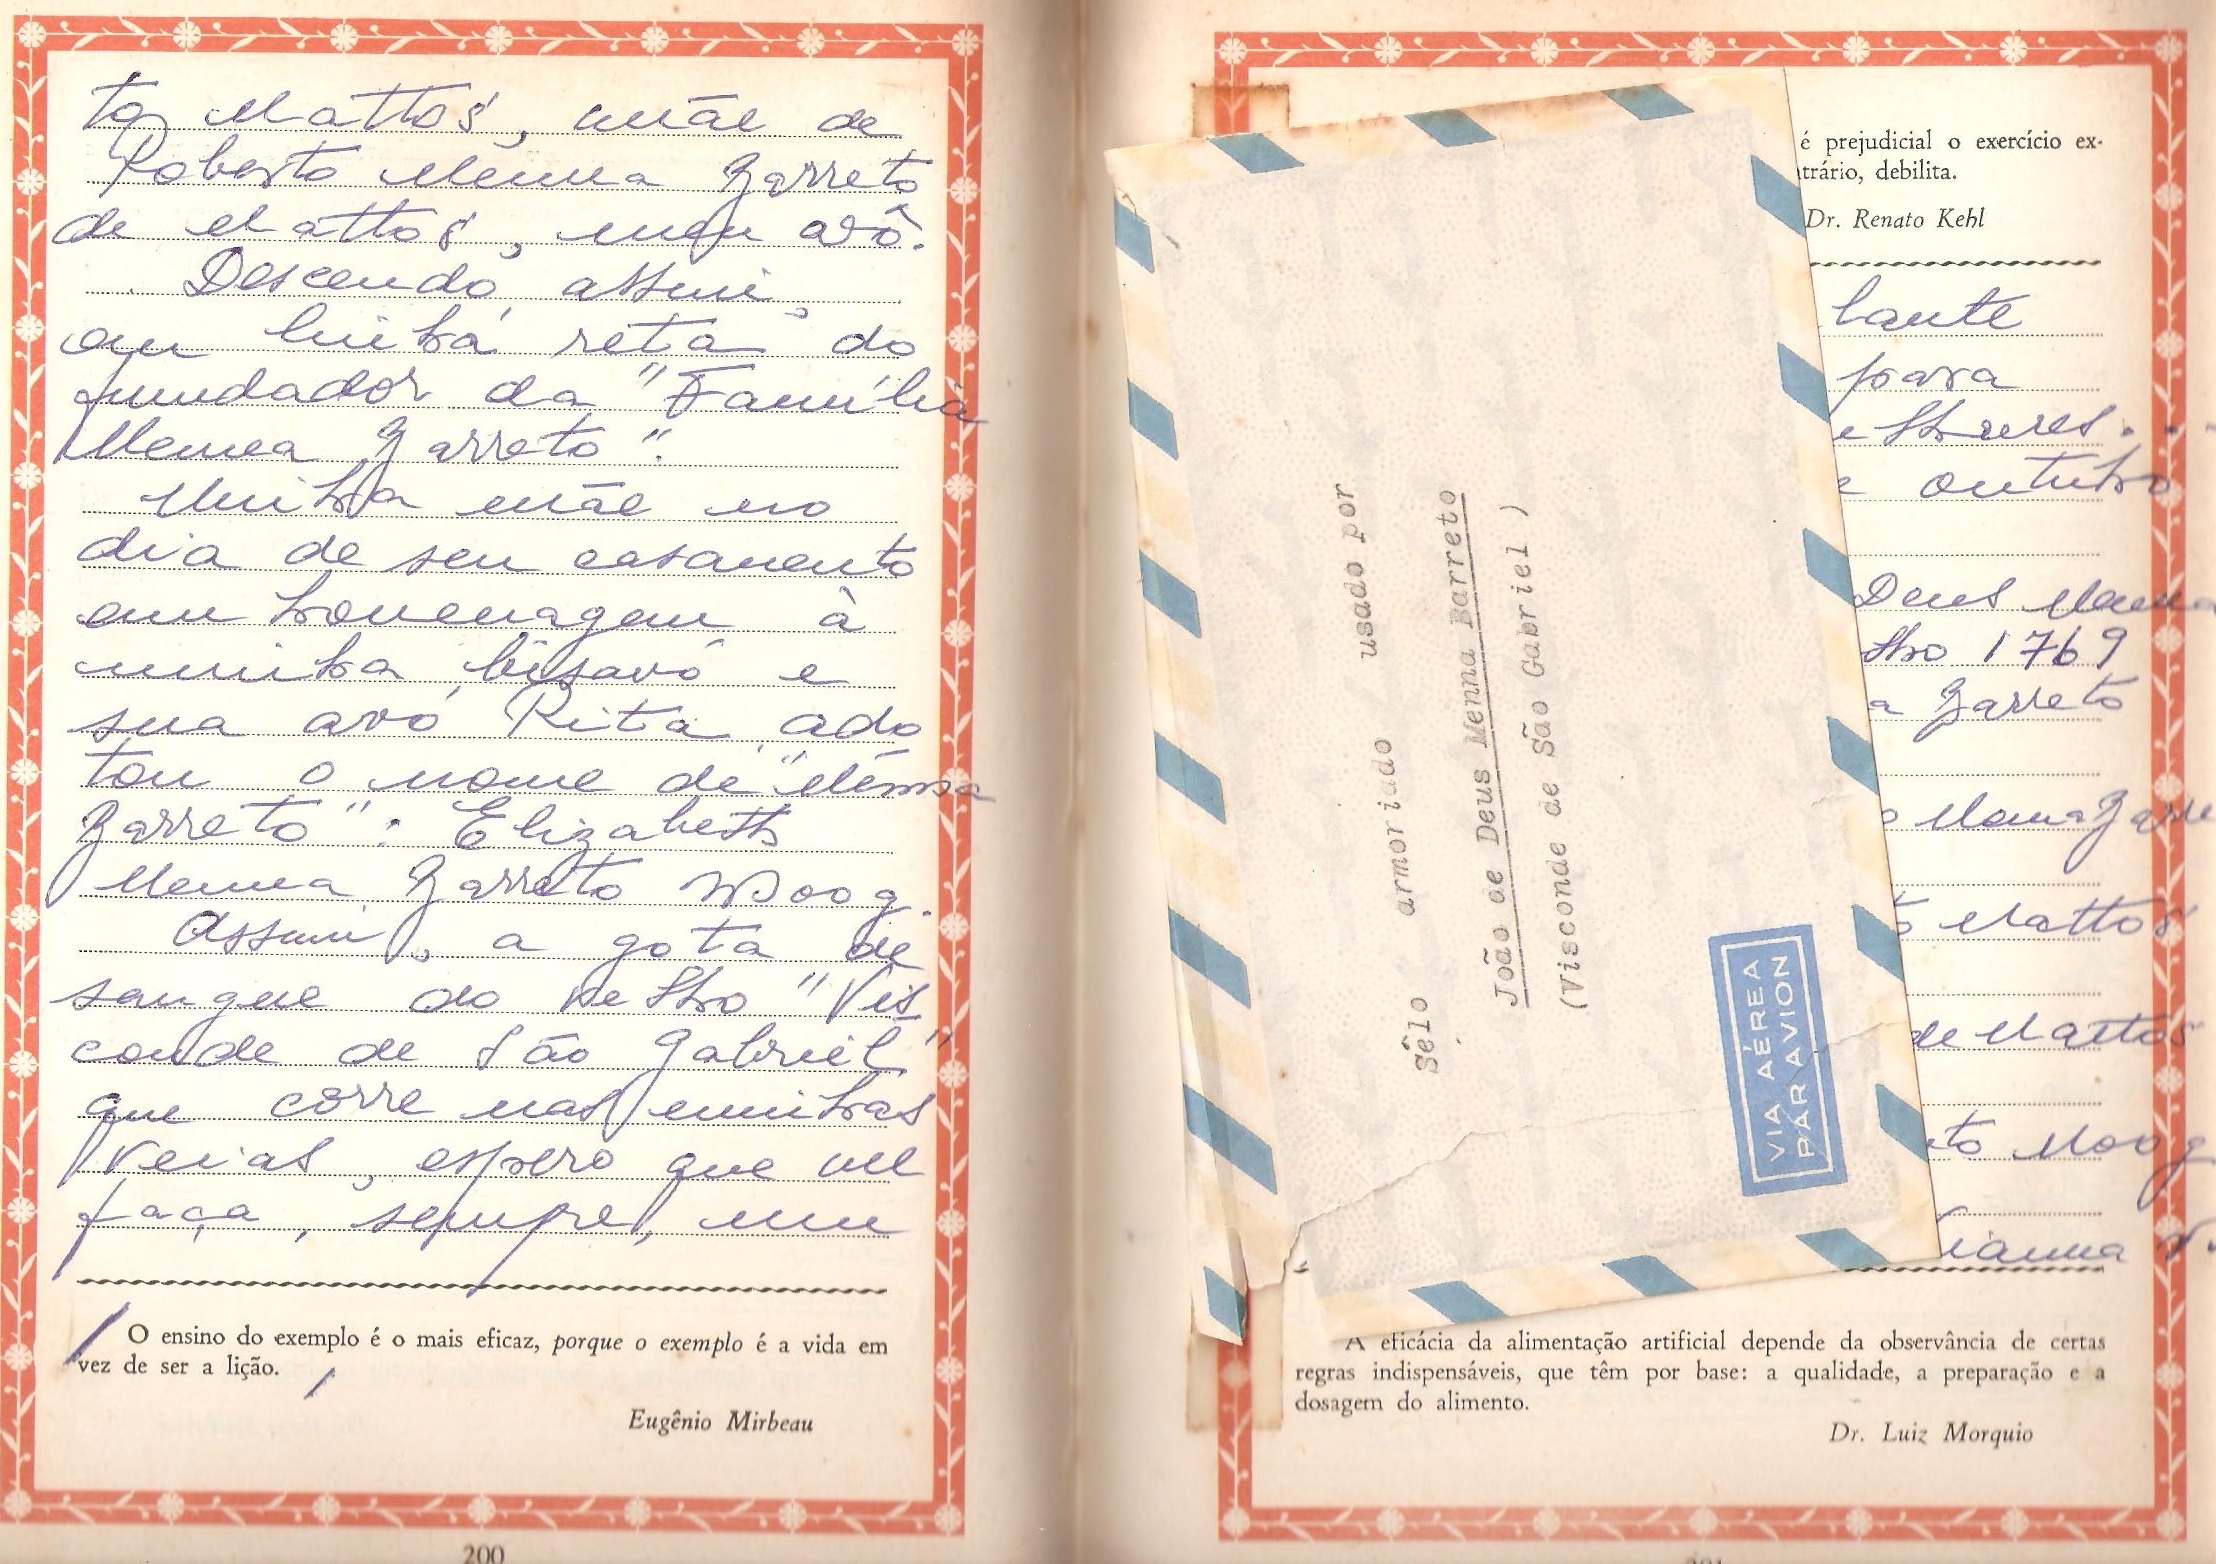 to Mattos, mãe de
Roberto Menna Barreto
de Mattos, meu avô.
Descendo, assim,
em linha reta do
fundador da "Família
Menna Barreto".
Minha mãe no
dia de seu casamento
em homenagem à
minha bisavó e
sua avó Rita, ado
tou o nome de "Menna
Barreto": Elizabeth
Menna Barreto Moog.
Assim, a gota de
sangue do nestro "Vis
conde de São Gabriel"
que corre nas minhas
veias, espero que me
faça, sempre, um
O ensino do exemplo é o mais eficaz, porque o exemplo é a vida em
vez de ser a lição.
Eugênio Mirbeau
200
é prejudicial o exercício ex-
trário, debilita.
Dr. Renato Kehl
para
outubro
Deus Menna
1769
a Barreto
Menna Barre
Mattos
de Mattos
to Moog
ianna
Sêlo armoriado usado por
João de Deus Menna Barreto
(Visconde de São Gabriel )
VIA AÉREA
PAR AVION
A eficácia da alimentação artificial depende da observância de certas
regras indispensáveis, que têm por base: a qualidade, a preparação e a
dosagem do alimento.
Dr. Luiz Morquio
201